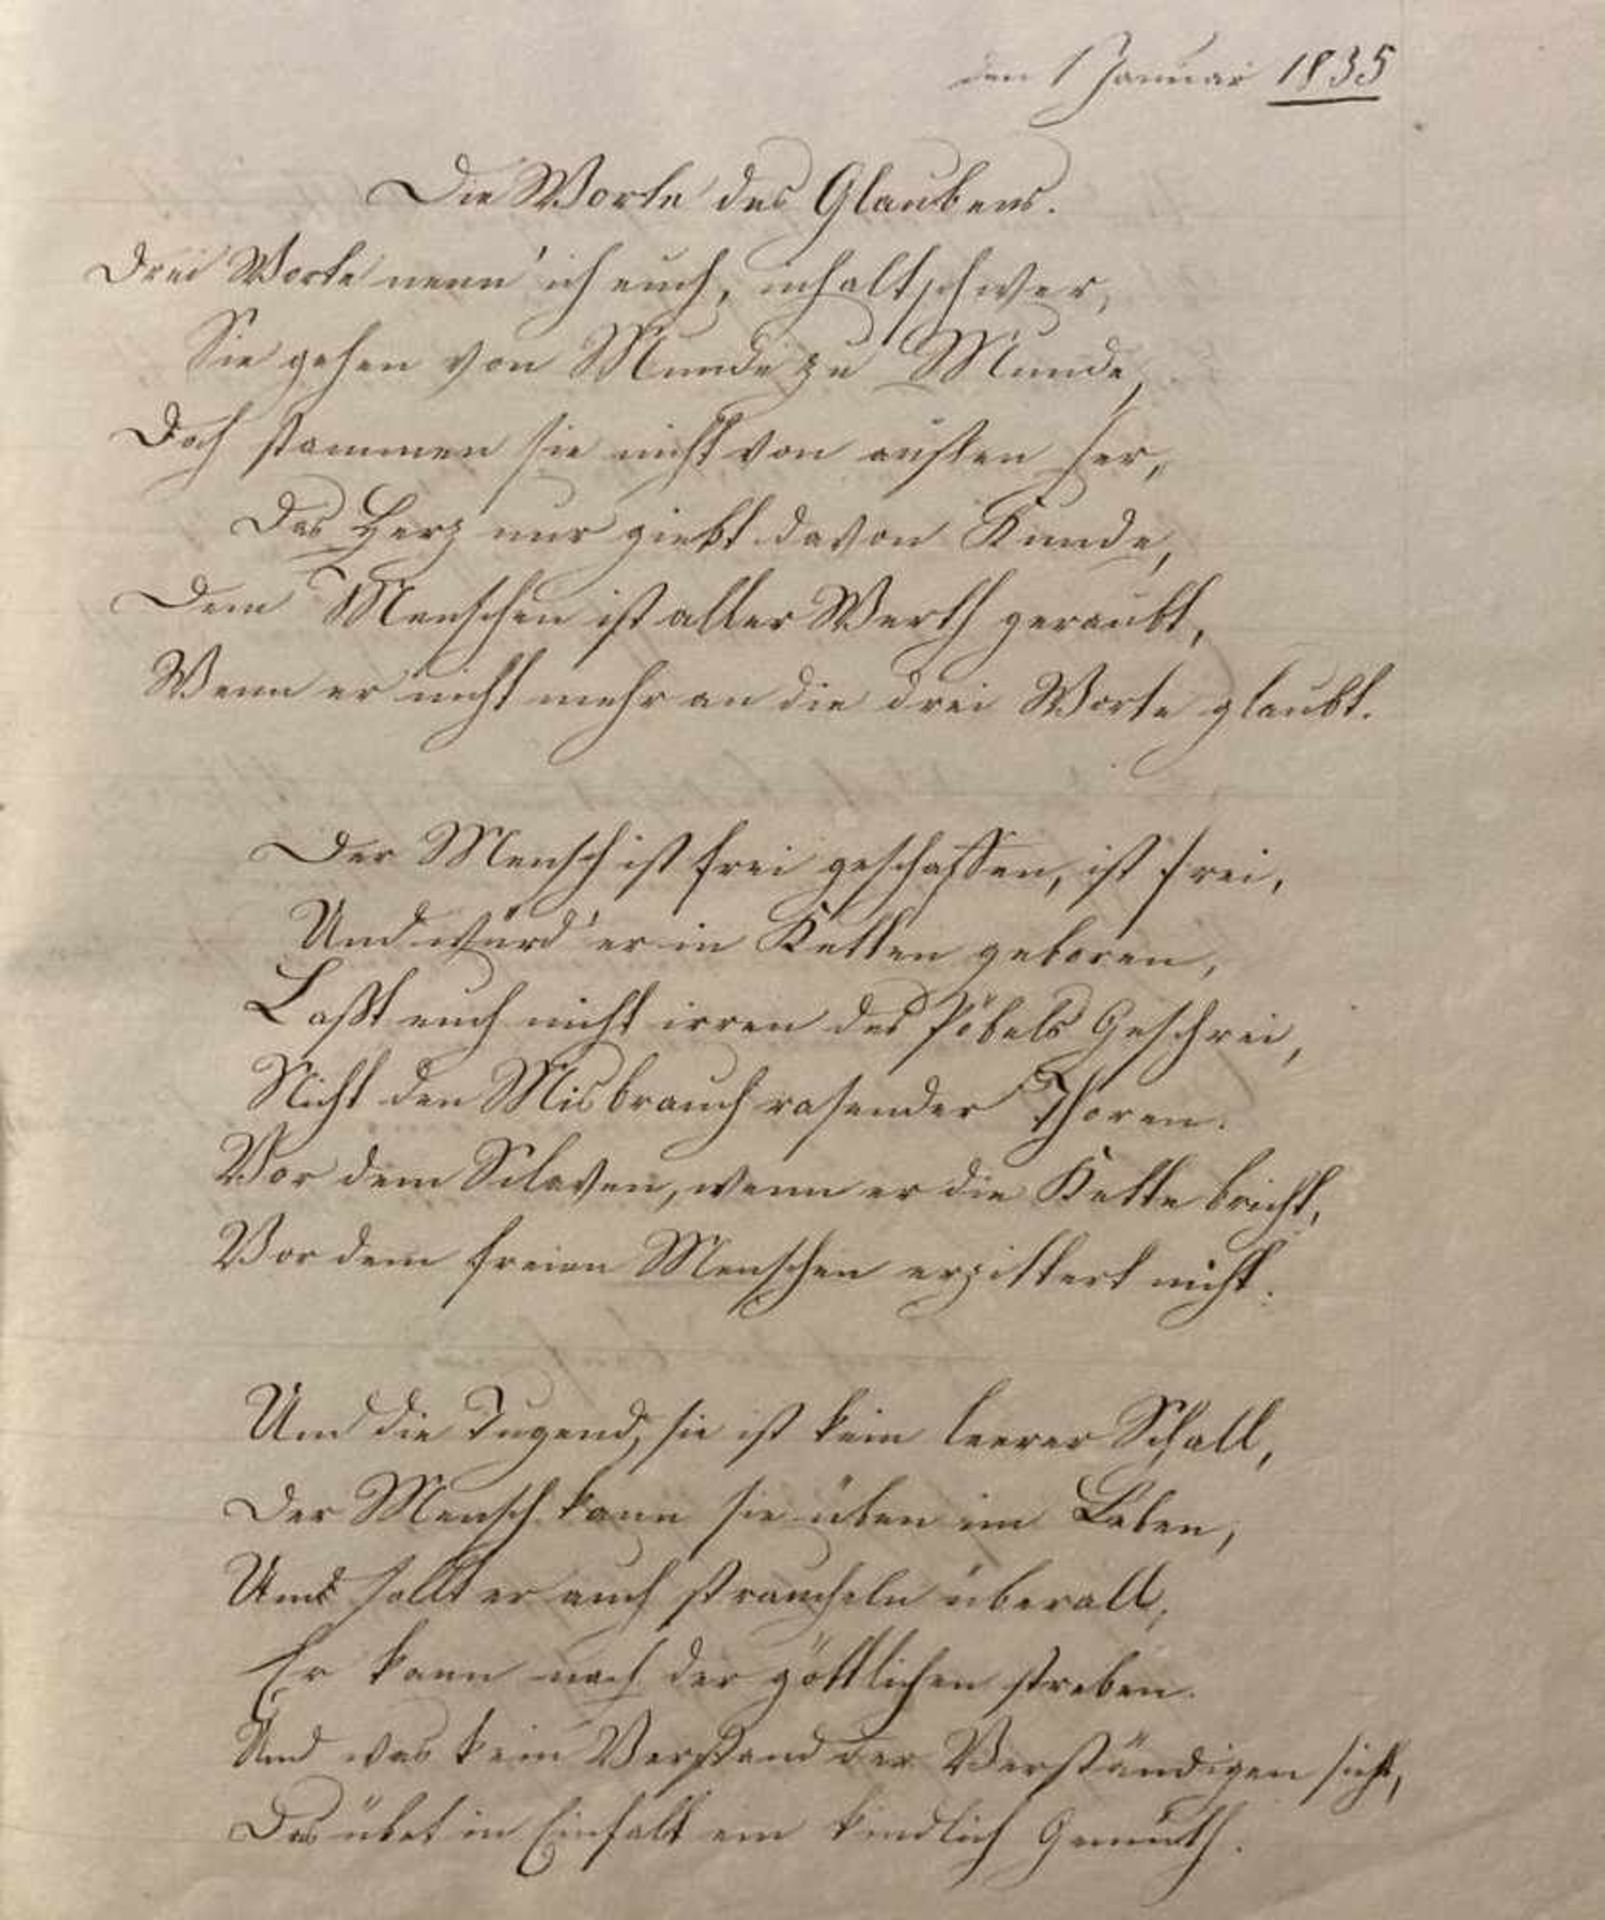 den 1 Januar 1835
Die Worte des Glaubens.
Drei Worte nenn' ich euch, inhaltschwer,
Sie gehen von Munde zu Munde,
Doch stammen sie nicht von außen her,
Das Herz nur giebt davon Kunde,
Dem Menschen ist aller Werth geraubt,
Wenn er nicht mehr an die drei Worte glaubt.
Der Mensch ist frei geschaffen, ist frei,
Und würd' er in Ketten geboren,
Laßt euch nicht irren des Pöbels Geschrei,
Nicht den Misbrauch rasender Thoren.
Vor dem Sclaven, wenn er die Kette bricht,
Vor dem freien Menschen erzittert nicht.
Und die Tugend, sie ist kein leerer Schall,
Der Mensch kann sie üben im Leben,
Und sollt er auch straucheln überall,
Er kann nach der göttlichen streben.
Und was kein Verstand der Verständigen sieht,
Das übet in Einfalt ein kindlich Gemüth.